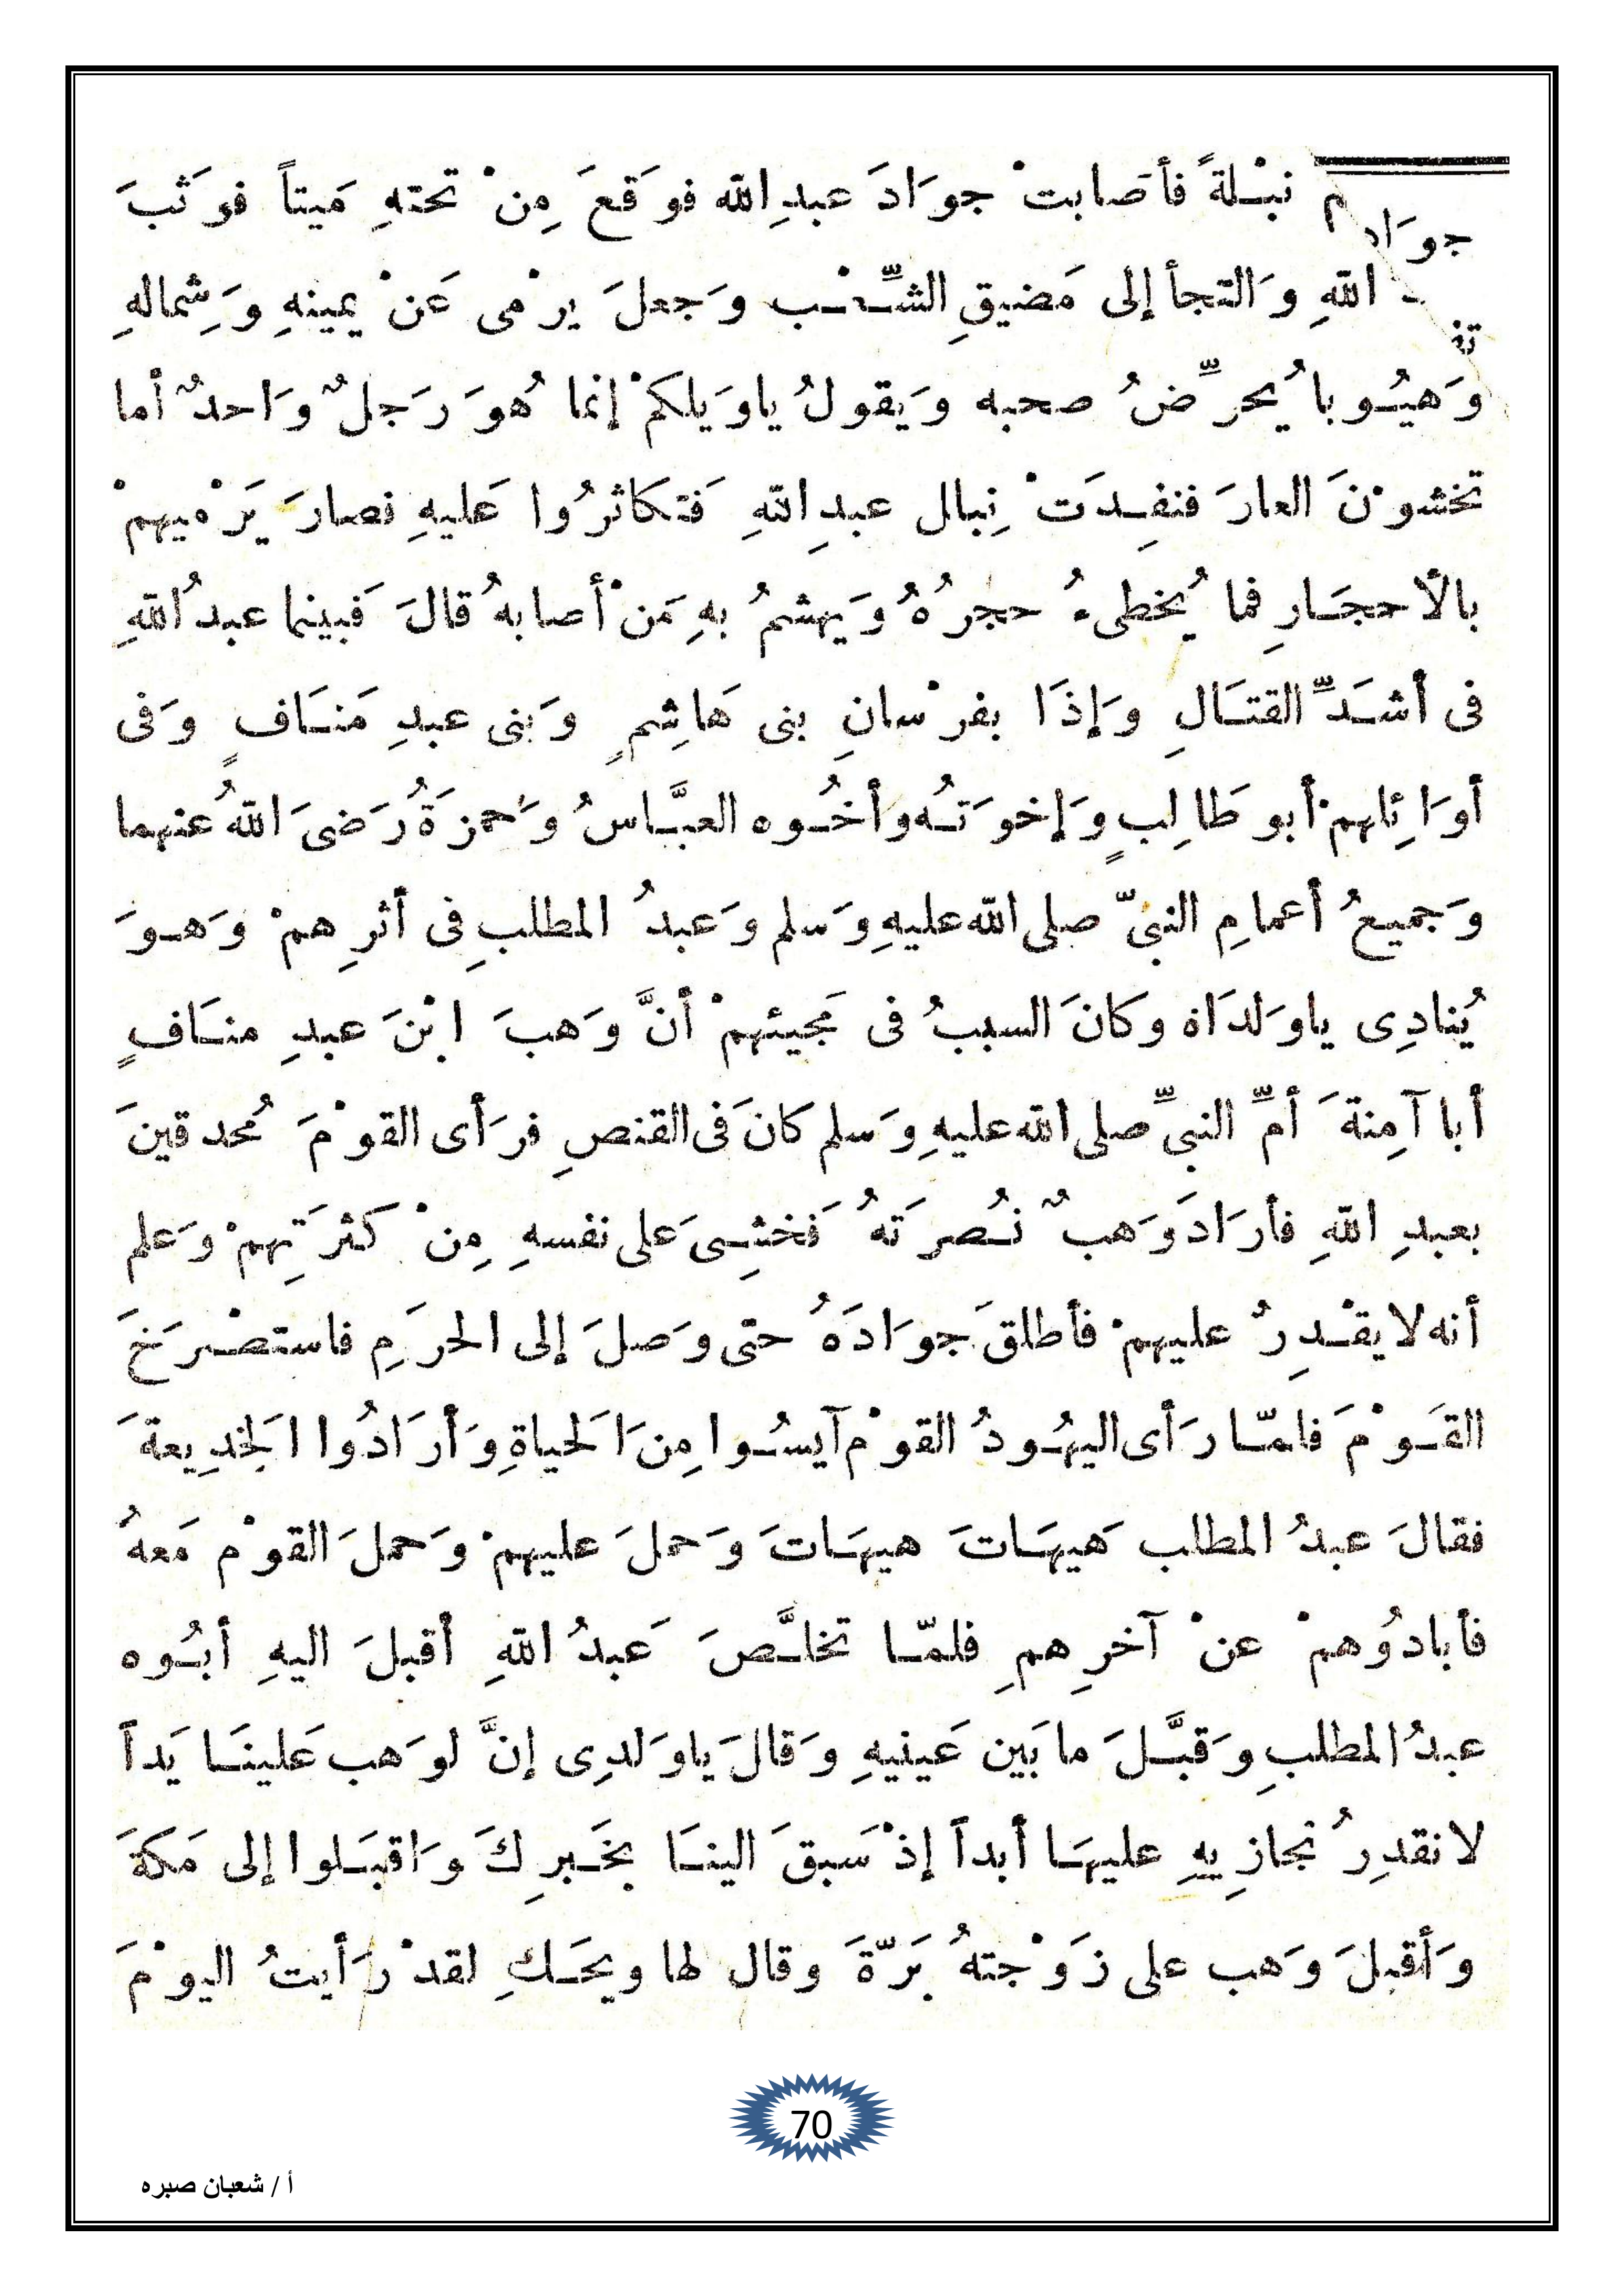 نبْلةً فأصابتْ جوَادَ عبدِ الله فوَقعَ مِنْ تحتهِ مَيتاً فوَثبَ
جوَاد
اللهِ وَالتجأ إلى مَضيقِ الشِّعْبِ وَجعلَ يرْمى عَنْ يمينهِ وَشِمالهِ
وَهيُوبا يُحرِّضُ صحبه وَيقولُ ياوَيلكمْ إنما هُوَ رَجلٌ وَاحدٌ أما
تخشوْنَ العارَ فنفِدَتْ نِبال عبدِ اللهِ فَتكاثرُوا عَليهِ فصارَ يَرْميهمْ
بالأحجَارِ فما يُخطىءُ حجرُهُ وَيهشمُ بهِ مَنْ أصابهُ قالَ فَبينما عبدُ اللهِ
فى أشَدِّ القتَالِ وَإذَا بفرْسانِ بنى هَاشِمٍ وَبنى عبدِ مَنَافٍ وَفى
أوَائِلهمْ أبو طَالِبٍ وَإخوَتُه وأخُوه العبَّاسُ وَحمزَةُ رَضىَ اللهُ عنهما
وَجميعُ أعمامِ النبىّ صلى الله عليهِ وَسلم وَعبدُ المطلبِ فى أثرِهمْ وَهوَ
يُنادِى ياوَلدَاه وكانَ السببُ فى مَجيئهمْ أنَّ وَهبَ ابْنَ عبدِ منَافٍ
أبا آمِنةَ أمِّ النبىِّ صلى الله عليهِ وَسلم كانَ فى القنصِ فرَأى القوْمَ مُحدقينَ
بعبدِ اللهِ فأرَادَ وَهبٌ نُصرَتهُ فَخشِىَ على نفسهِ مِنْ كثرَتِهمْ وَعلم
أنه لا يقْدِرُ عليهمْ فأطلقَ جوَادَهُ حتى وَصلَ إلى الحرَمِ فاستصْرَخَ
القَوْمَ فلمّا رَأى اليهُودُ القوْم آيسُوا مِنَ الَحياةِ وَأرَادُوا الَخدِيعةَ
فقالَ عبدُ المطلب هَيهَاتَ هيهَاتَ وَحملَ عليهمْ وَحملَ القوْم مَعهُ
فأبادُوهمْ عنْ آخرِهمِ فلمّا تخلَّصَ عَبدُ اللهِ أقبلَ اليهِ أبُوه
عبدُ المطلبِ وَقبَّلَ ما بَين عَينيهِ وَقالَ ياوَلدِى إنَّ لوَهب عَلينَا يَداً
لا نقدِرُ نجازِيهِ عليهَا أبداً إذْ سَبقَ الينَا بخَبرِكَ وَاقبَلوا إلى مَكةَ
وَأقبلَ وَهب على زَوْجتهُ بَرّةَ وقال لها ويحَكِ لقدْ رَأيتُ اليوْمَ
70
أ / شعبان صبره